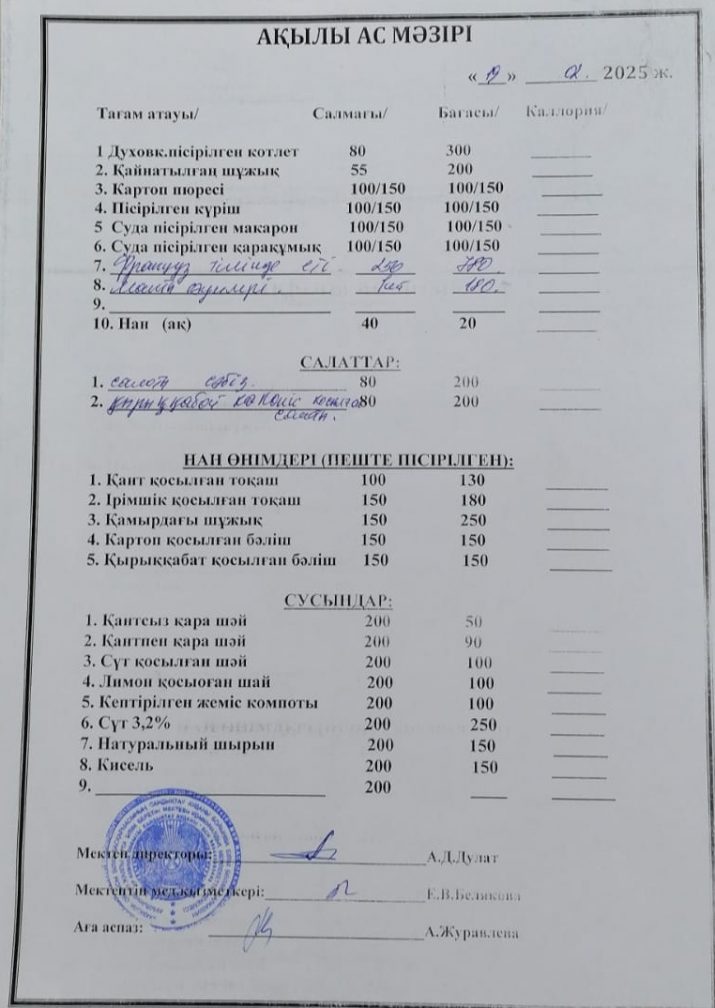 АҚЫЛЫ АС МӘЗІРІ
« 19 » 02. 2025 ж.
Тағам атауы/ Салмағы/ Бағасы/ Каллория/
1 Духовк.пісірілген котлет 80 300
2. Қайнатылған шұжық 55 200
3. Картоп пюресі 100/150 100/150
4. Пісірілген күріш 100/150 100/150
5 Суда пісірілген макарон 100/150 100/150
6. Суда пісірілген қарақұмық 100/150 100/150
7. Француз тілінде еті 780.
8. 180.-
9.
10. Нан (ақ) 40 20
САЛАТТАР:
1. салат сәбіз. 80 200
2. қырыққабат 80 200
салат.
НАН ӨНІМДЕРІ (ПЕШТЕ ПІСІРІЛГЕН):
1. Қант қосылған тоқаш 100 130
2. Ірімшік қосылған тоқаш 150 180
3. Қамырдағы шұжық 150 250
4. Картоп қосылған бәліш 150 150
5. Қырыққабат қосылған бәліш 150 150
СУСЫНДАР:
1. Қантсыз қара шәй 200 50
2. Қантпен қара шәй 200 90
3. Сүт қосылған шәй 200 100
4. Лимон қосыоған шай 200 100
5. Кептірілген жеміс компоты 200 100
6. Сүт 3,2% 200 250
7. Натуральный шырын 200 150
8. Кисель 200 150
9. 200
Мектеп директоры: А.Д.Дулат
Мектептің мед.қызметкері: Е.В.Белякова
Аға аспаз: А.Журавлева